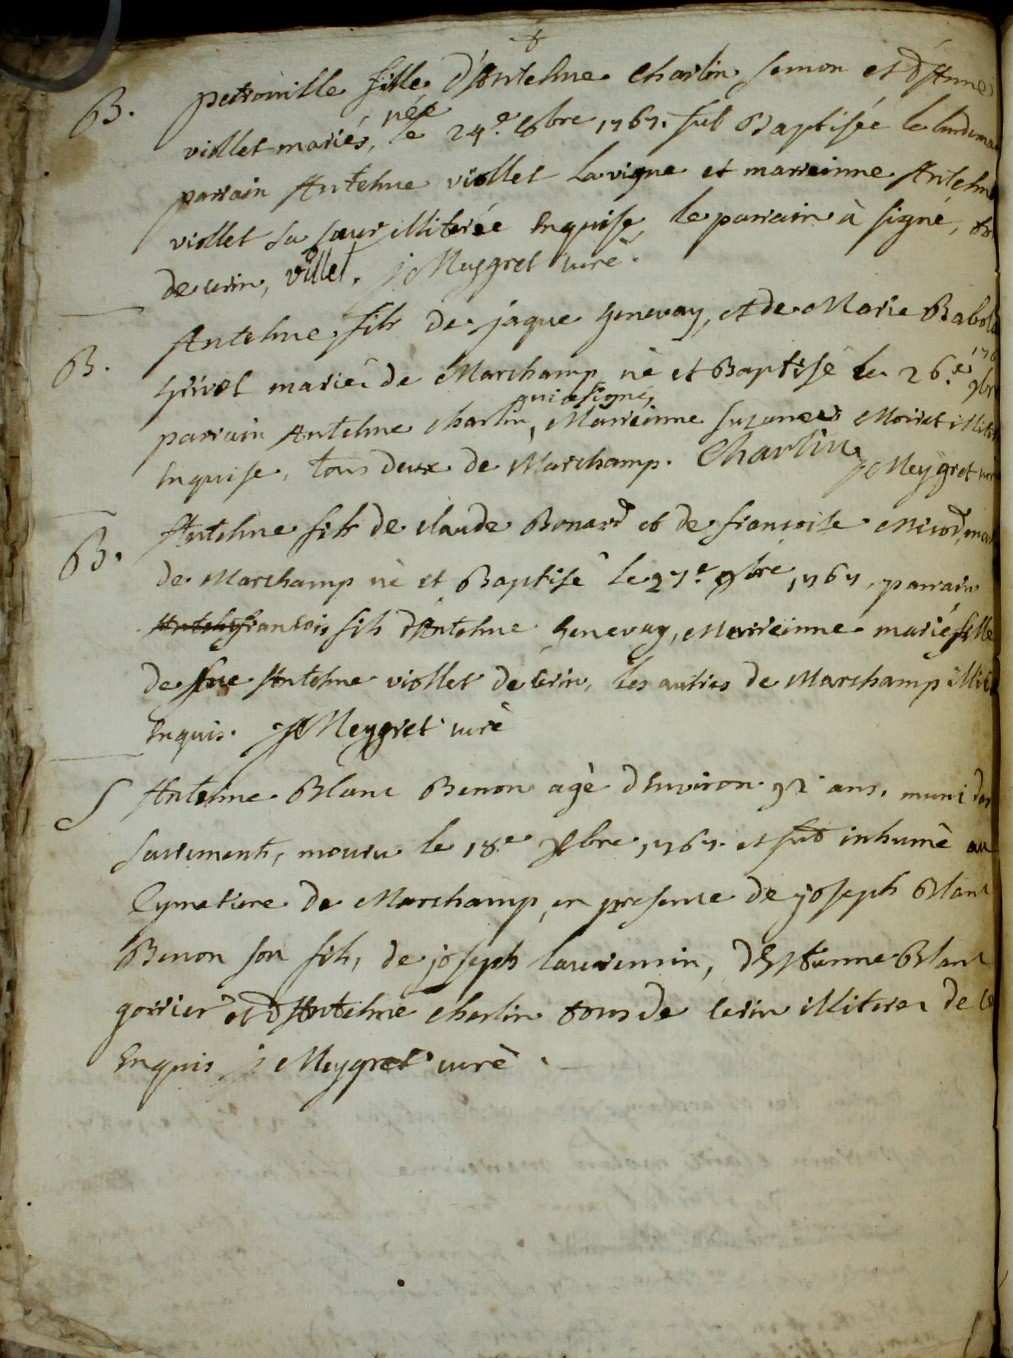 B. petronille fille d'Antelme charlin semon et d'Anne
viollet mariés, née le 24e 8bre 1767. fut Baptisée le
parrain Antelme viollet Lavigne et marreinne Antelme
viollet sa sœur illiterée Enquise, le parrain à signé,
de cerin, viollet. j Meygret curé.
B. Antelme fils de jaque Genevay, et de Marie
mariés de Marchamp né et Baptisé le 26e 9bre
parrain Antelme charlin, qui a signé, Marreinne Suzanne Moiret
Enquise, tous deux de Marchamp. Charlin j Meygret
B. Antelme fils de claude Bonard et de francoise
de Marchamp né et Baptisé le 27e 9bre 1767. parrain
francois fils d'Antelme Genevay, Marreinne marie fille
de feu Antelme viollet de cerin, les autres de Marchamp
Enquis. j Meygret curé
S Antelme Blanc Benon agé d'Environ 92 ans, muni des
sacrements, mouru le 18e 1767. et fut inhumé au
Cymetiere de Marchamp, en presence de joseph Blanc
Benon son fils, de joseph d'Etienne Blanc
et d'Antelme charlin tous de cerin illiteres de ce
Enquis j Meygret curé.